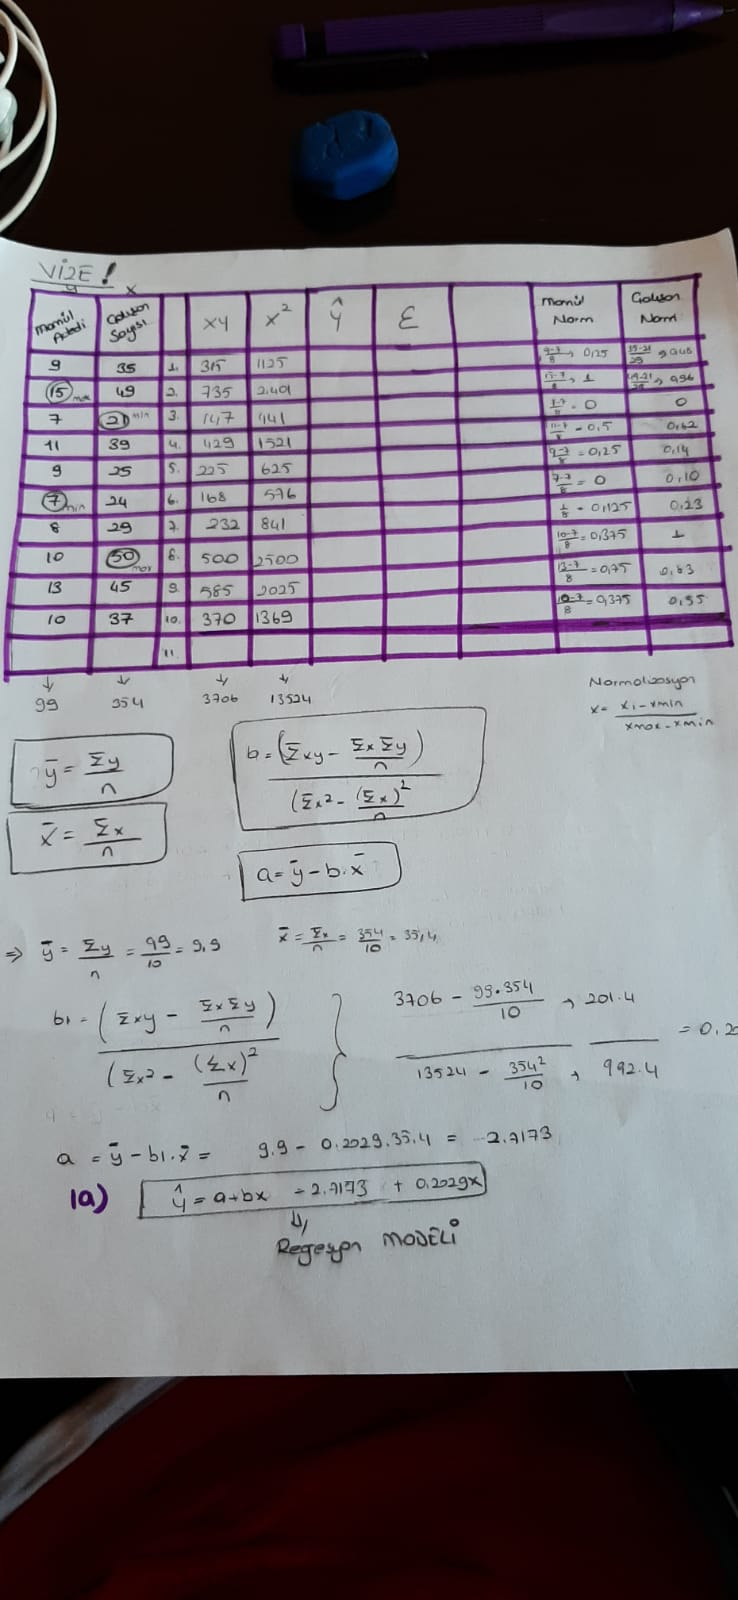 VİZE!
y x
Mamül Adedi Çalışan Sayısı XY X² Ŷ Ɛ Mamül Norm Çalışan Norm
9 35 1. 315 1125 9-7/8 → 0,25
15 max 49 2. 735 2401 15-7/8 → 1
7 21 min 3. 147 441 7-7/8 = 0 0
11 39 4. 429 1521 11-7/8 = 0.5 0,62
9 25 5. 225 625 9-7/8 = 0,25 0,14
7 min 24 6. 168 576 7-7/8 = 0 0,10
8 29 7. 232 841 1/8 = 0,125 0,23
10 50 max 8. 500 2500 10-7/8 = 0,375 1
13 45 9. 585 2025 13-7/8 = 0,75 0,83
10 37 10. 370 1369 10-7/8 = 0,375 0,55
11.
99 354 3706 13524
Normalizasyon
x = xi - xmin / xmax - xmin
ȳ = Σy / n
x̄ = Σx / n
b = (Σxy - ΣxΣy/n) / (Σx² - (Σx)²/n)
a = ȳ - b. x̄
⇒ ȳ = Σy/n = 99/10 = 9,9 x̄ = Σx/n = 354/10 = 35,4
b1 = (Σxy - ΣxΣy/n) / (Σx² - (Σx)²/n) } 3706 - 99.354/10 → 201.4 / 13524 - 354²/10 → 992.4 = 0.20
a = ȳ - b1. x̄ = 9.9 - 0.2029.35.4 = 2.7173
1a) ŷ = a+bx = 2.7173 + 0.2029x
Regesyon MODELİ